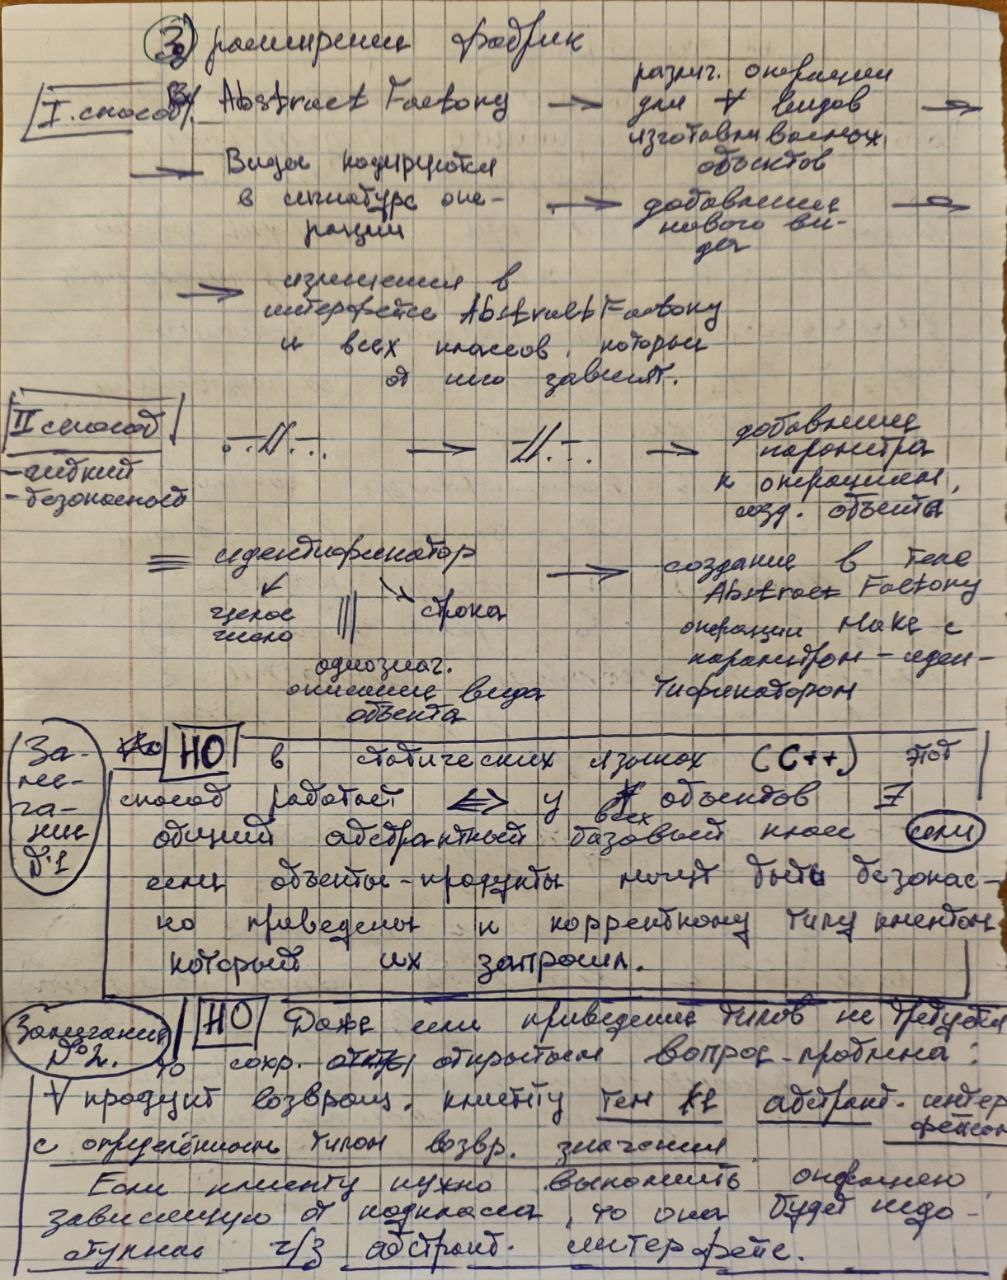 3) расширении фабрик
I. способ В Abstract Factory → различ. операции
для ∀ видов →
изготавливаемых
объектов
→ Виды кодируются
в сигнатуре опе-
рации
→ добавление
нового ви-
да →
→ изменения в
интерфейсе Abstract Factory
и всех классов, которые
от него зависят.
II способ
- гибкий
- безопасность
–·–//–·–·· → –//–·–·· → добавление
параметра
к операциям,
созд. объекта
≡ идентификатор
целое
число
||| строка
однознач.
описание вида
объекта
→ создание в теле
Abstract Factory
операции Make с
параметром – иден-
тификатором
Замечание №1
НО в статических языках (С++) этот
способ работает <=> у всех объектов ∃
общий абстрактный базовый класс или
если объекты-продукты могут быть безопас-
но приведены к корректному типу клиентом
который их запросил.
Замечание №2.
НО Даже если приведение типов не требуется
то сохр. открытым вопрос-проблема:
∀ продукт возвращ. клиенту тем абстракт. интер
фейсом
с определённым типом возвр. значения
Если клиенту нужно выполнить операцию
зависящую от подкласса, то она будет недо-
ступна ч/з абстракт. интерфейс.